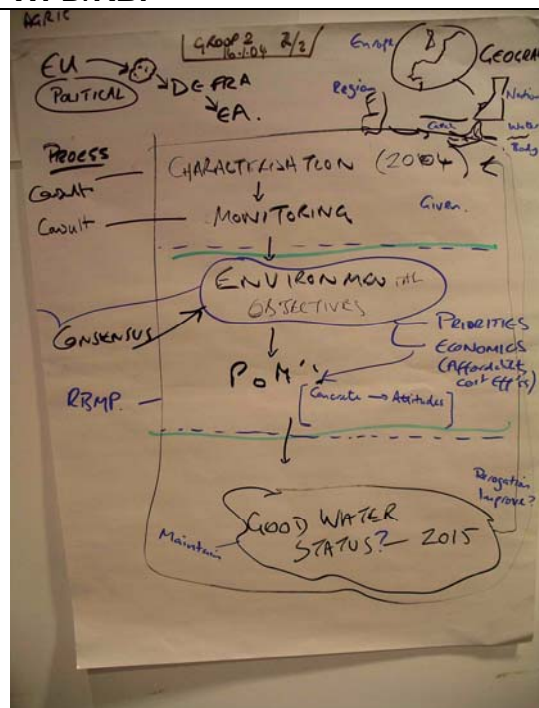 AGRIC
GROUP 2 2/2
16.1.04
EU
POLITICAL
DEFRA
EA.
Europe
GEOGRA
Region
Nation
Catch
Water
Body
PROCESS
Consult
CHARACTERISATION (2004)
Consult
MONITORING
Given.
ENVIRONMENTAL
OBJECTIVES
CONSENSUS
PRIORITIES
ECONOMICS
(Affordable
cost eff's)
PoM's
[Concrete → Attitudes]
RBMP.
Derogation
Improve?
GOOD WATER
STATUS? — 2015
Maintain